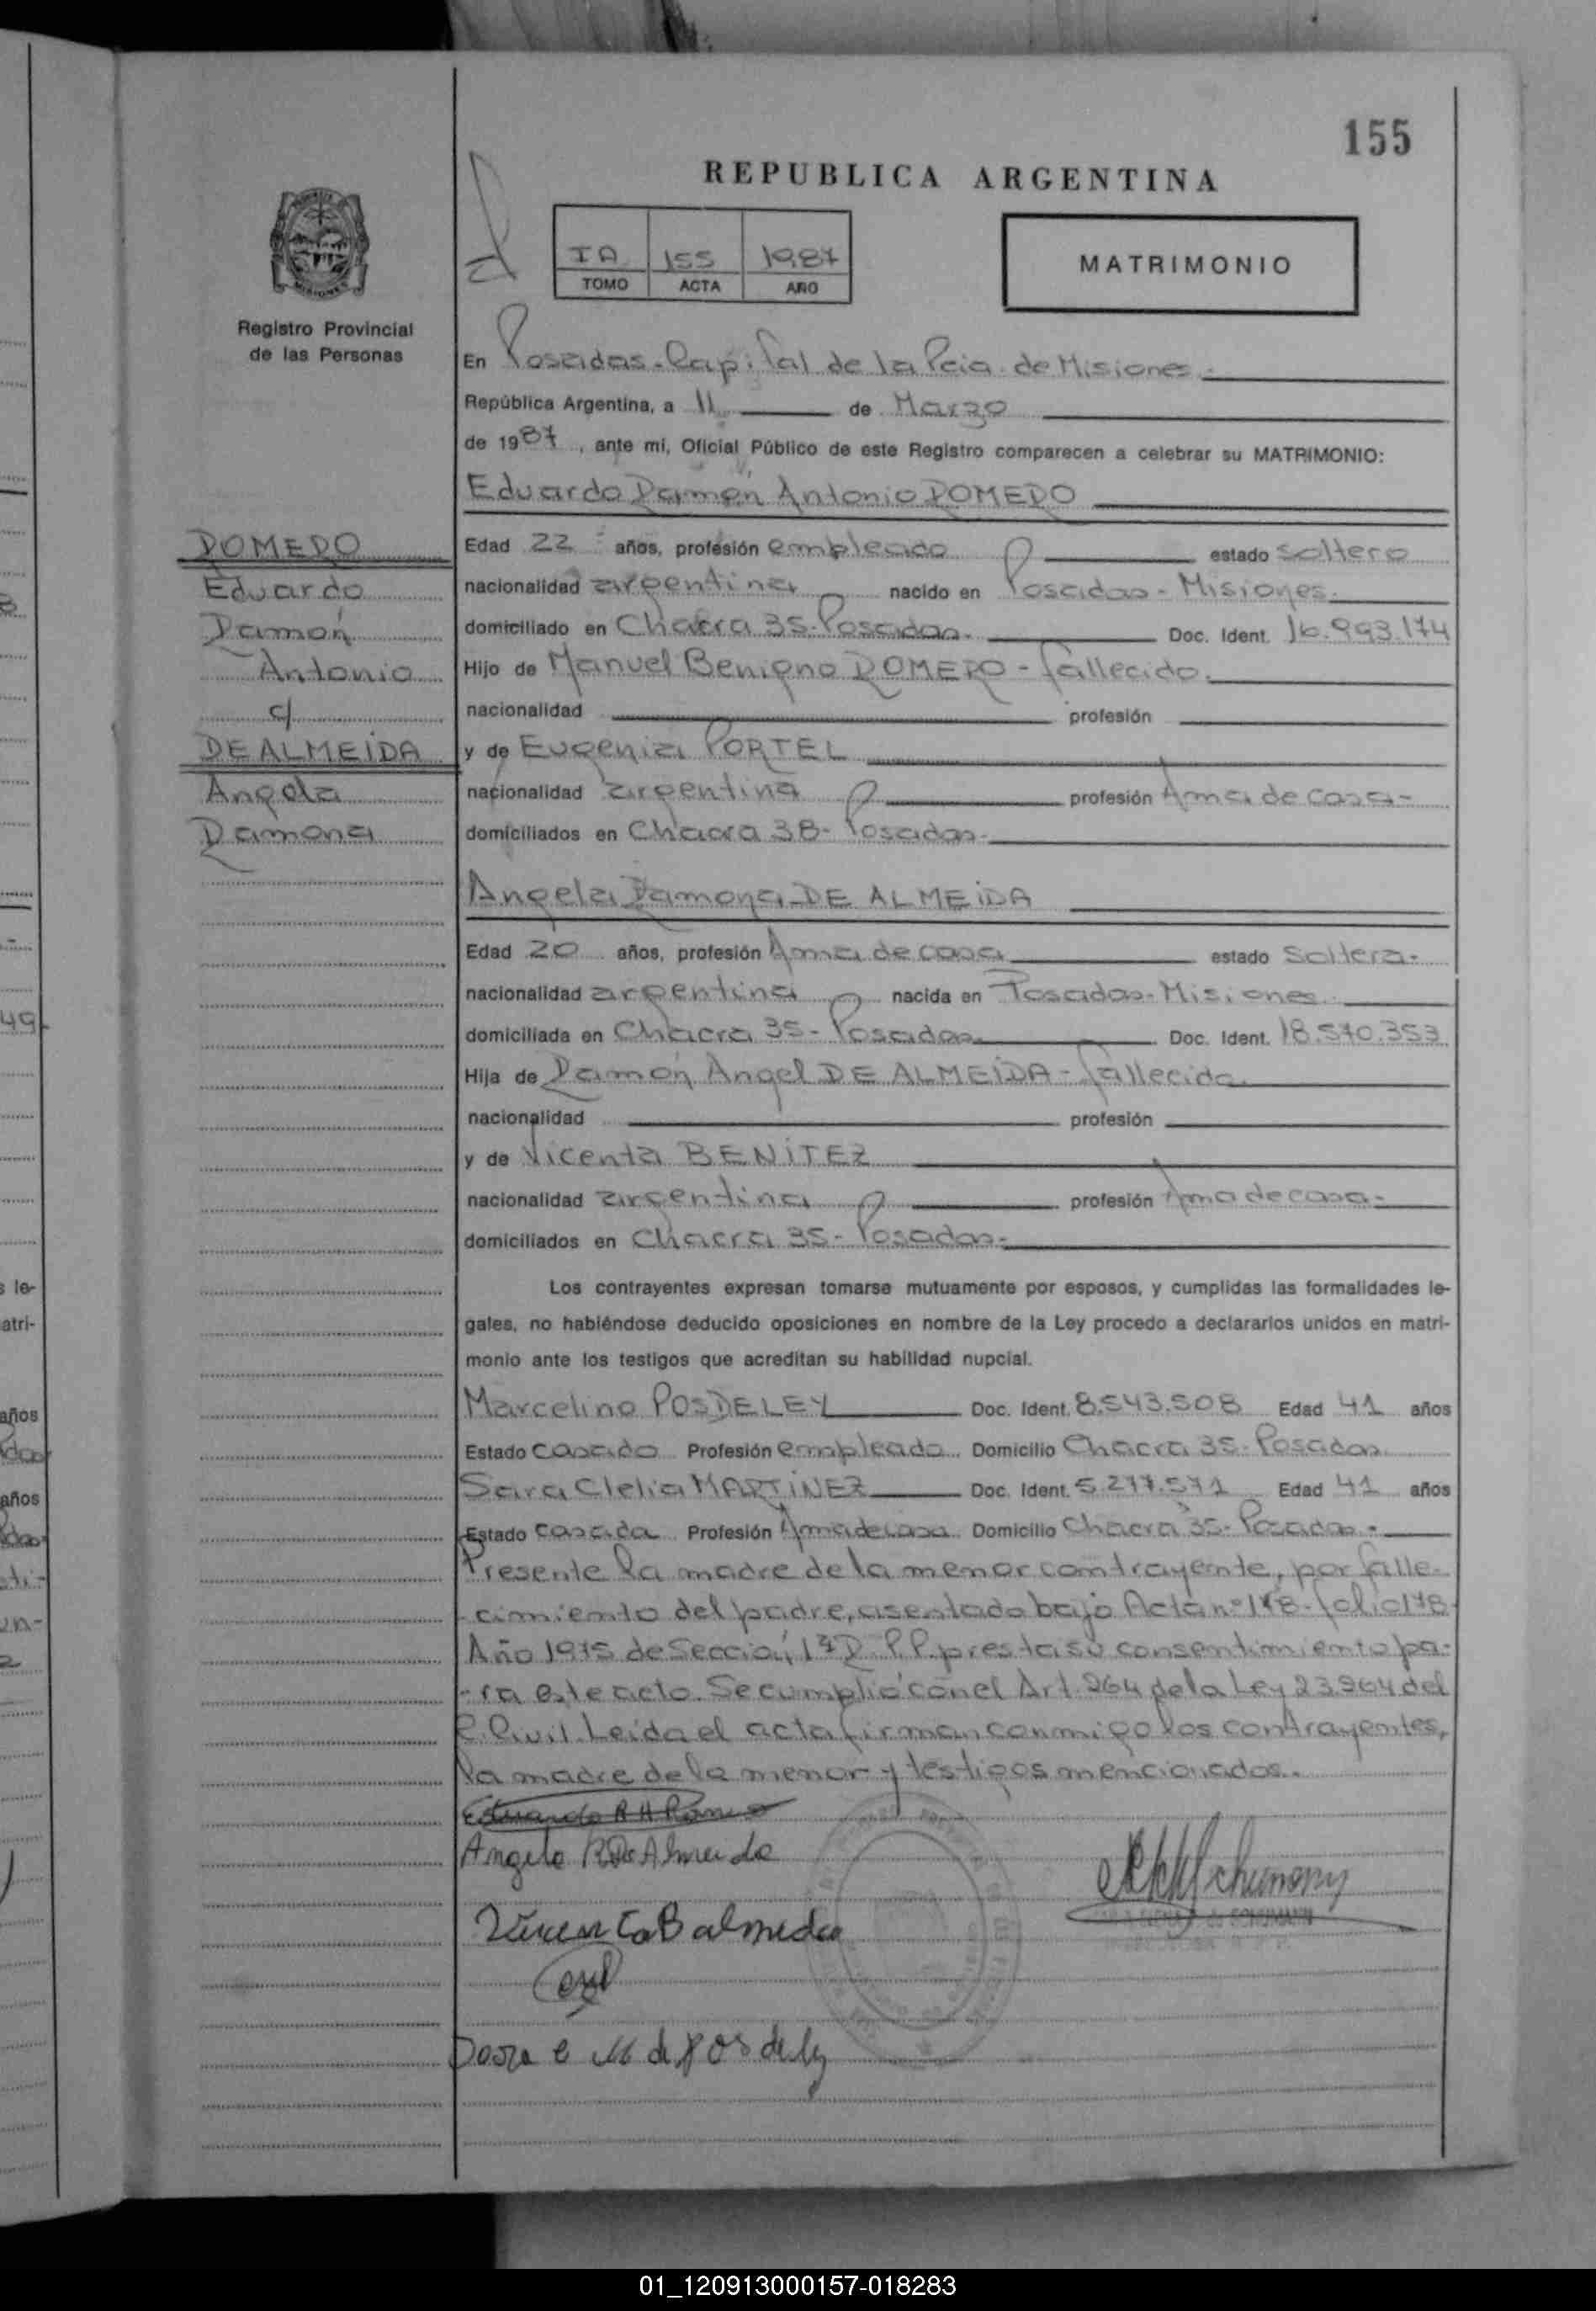 155
REPUBLICA ARGENTINA
IA 155 1987
TOMO ACTA AÑO
MATRIMONIO
MISIONES
Registro Provincial
de las Personas
En Posadas-Capital de la Pcia de Misiones.-
República Argentina, a 11 de Marzo
de 1987, ante mí, Oficial Público de este Registro comparecen a celebrar su MATRIMONIO:
Eduardo Ramón Antonio ROMERO
ROMERO
Eduardo
Ramón
Antonio
c/
DE ALMEIDA
Angela
Ramona
Edad 22 años, profesión empleado estado soltero
nacionalidad argentina nacido en Posadas - Misiones.
domiciliado en Chacra 35-Posadas. Doc. Ident. 16.993.174
Hijo de Manuel Benigno ROMERO - fallecido.
nacionalidad profesión
y de Eugenia PORTEL
nacionalidad argentina profesión Ama de casa-
domiciliados en Chacra 38- Posadas-
Angela Ramona DE ALMEIDA
Edad 20 años, profesión Ama de casa estado Soltera-
nacionalidad argentina nacida en Posadas-Misiones.
domiciliada en Chacra 35- Posadas. Doc. Ident. 18.570.353
Hija de Ramón Angel DE ALMEIDA - fallecido
nacionalidad profesión
y de Vicenta BENITEZ
nacionalidad argentina profesión Ama de casa-
domiciliados en Chacra 35- Posadas-
Los contrayentes expresan tomarse mutuamente por esposos, y cumplidas las formalidades le-
gales, no habiéndose deducido oposiciones en nombre de la Ley procedo a declararlos unidos en matri-
monio ante los testigos que acreditan su habilidad nupcial.
Marcelino POSDELEY Doc. Ident. 8.543.508 Edad 41 años
Estado casado Profesión empleado Domicilio Chacra 35- Posadas
Sara Clelia MARTINEZ Doc. Ident. 5.277.571 Edad 41 años
Estado casada Profesión Ama de casa Domicilio Chacra 35- Posadas-
Presente la madre de la menor contrayente, por falle-
cimiento del padre, asentado bajo Acta nº 178- folio 178-
Año 1975 de Sección 1ª R.P.P. presta su consentimiento pa-
-ra este acto. Se cumplió con el Art. 264 de la Ley 23.264 del
C. Civil. Leída el acta firman conmigo los contrayentes,
la madre de la menor y testigos mencionados.
Eduardo R A Romero
Angela R De Almeida
Vicenta B almeda
de Posdeley
01_120913000157-018283